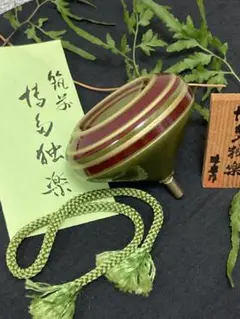 筑前
博多独楽
博多独楽